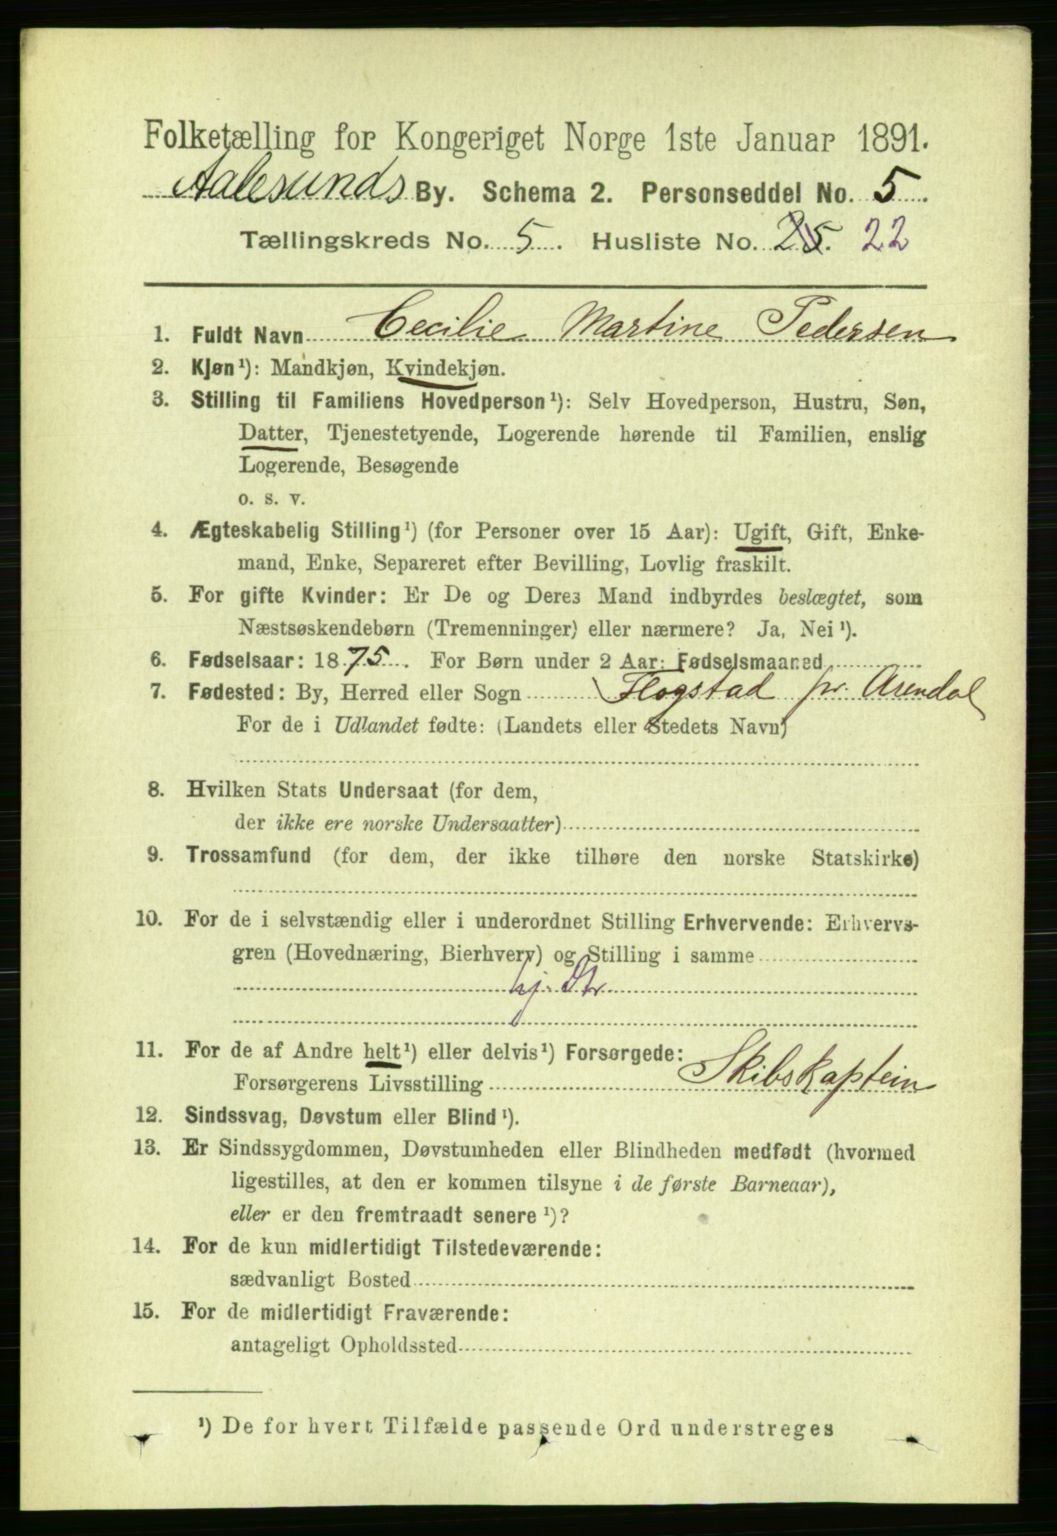 Folketælling for Kongeriget Norge 1ste Januar 1891.
Aalesunds By. Schema 2. Personseddel No. 5.
Tællingskreds No. 5. Husliste No. 25. 22
1. Fuldt Navn Cecilie Martine Pedersen
2. Kjøn¹): Mandkjøn, Kvindekjøn.
3. Stilling til Familiens Hovedperson¹): Selv Hovedperson, Hustru, Søn,
Datter, Tjenestetyende, Logerende hørende til Familien, enslig
Logerende, Besøgende
o. s. v.
4. Ægteskabelig Stilling¹) (for Personer over 15 Aar): Ugift, Gift, Enke-
mand, Enke, Separeret efter Bevilling, Lovlig fraskilt.
5. For gifte Kvinder: Er De og Deres Mand indbyrdes beslægtet, som
Næstsøskendebørn (Tremenninger) eller nærmere? Ja, Nei¹).
6. Fødselsaar: 1875. For Børn under 2 Aar: Fødselsmaaned
7. Fødested: By, Herred eller Sogn Flogstad pr. Arendal
For de i Udlandet fødte: (Landets eller Stedets Navn)
8. Hvilken Stats Undersaat (for dem,
der ikke ere norske Undersaatter)
9. Trossamfund (for dem, der ikke tilhøre den norske Statskirke)
10. For de i selvstændig eller i underordnet Stilling Erhvervende: Erhvervs-
gren (Hovednæring, Bierhverv) og Stilling i samme
hj. Dtr
11. For de af Andre helt¹) eller delvis¹) Forsørgede:
Forsørgerens Livsstilling Skibskaptein
12. Sindssvag, Døvstum eller Blind¹).
13. Er Sindssygdommen, Døvstumheden eller Blindheden medfødt (hvormed
ligestilles, at den er kommen tilsyne i de første Barneaar),
eller er den fremtraadt senere¹)?
14. For de kun midlertidigt Tilstedeværende:
sædvanligt Bosted
15. For de midlertidigt Fraværende:
antageligt Opholdssted
¹) De for hvert Tilfælde passende Ord understreges